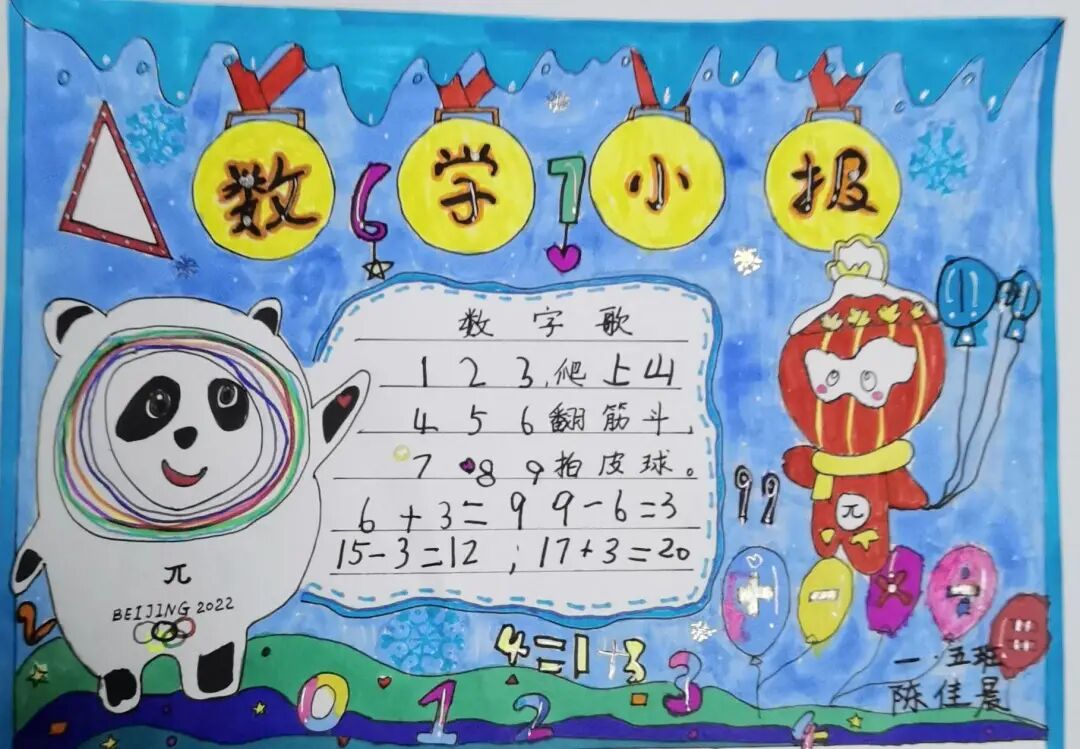 数学小报
6 7
数字歌
1 2 3, 爬上山
4 5 6 翻筋斗,
7 8 9 拍皮球。
6+3=9 9-6=3
15-3=12 ; 17+3=20
99
π
π
BEIJING 2022
+ - × ÷
2
4=1+3
0 1 2 3
一.五班
陈佳晨